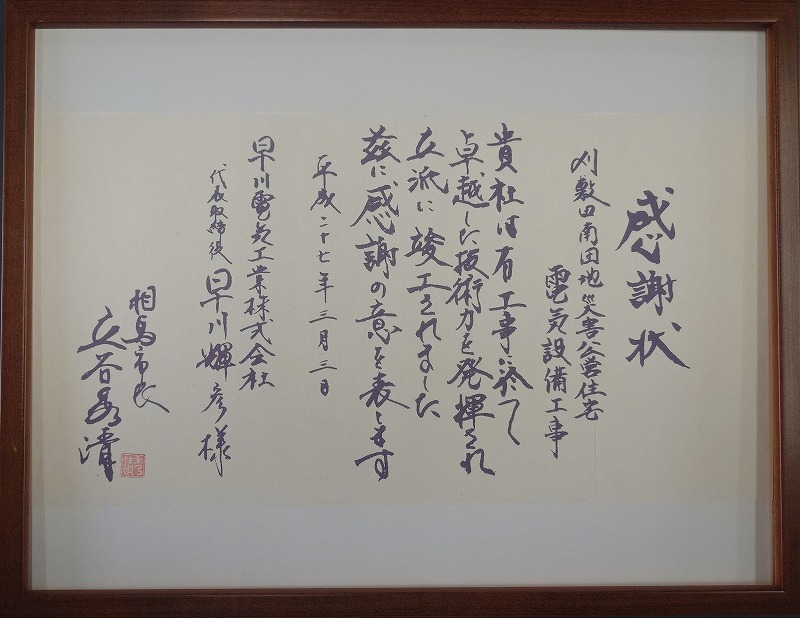 感謝状
刈敷田南団地災害公営住宅
電気設備工事
貴社は右工事に於て
卓越した技術力を発揮され
立派に竣工されました
茲に感謝の意を表します
平成二十七年三月三日
早川電気工業株式会社
代表取締役 早川輝彦様
相馬市長
立谷秀清